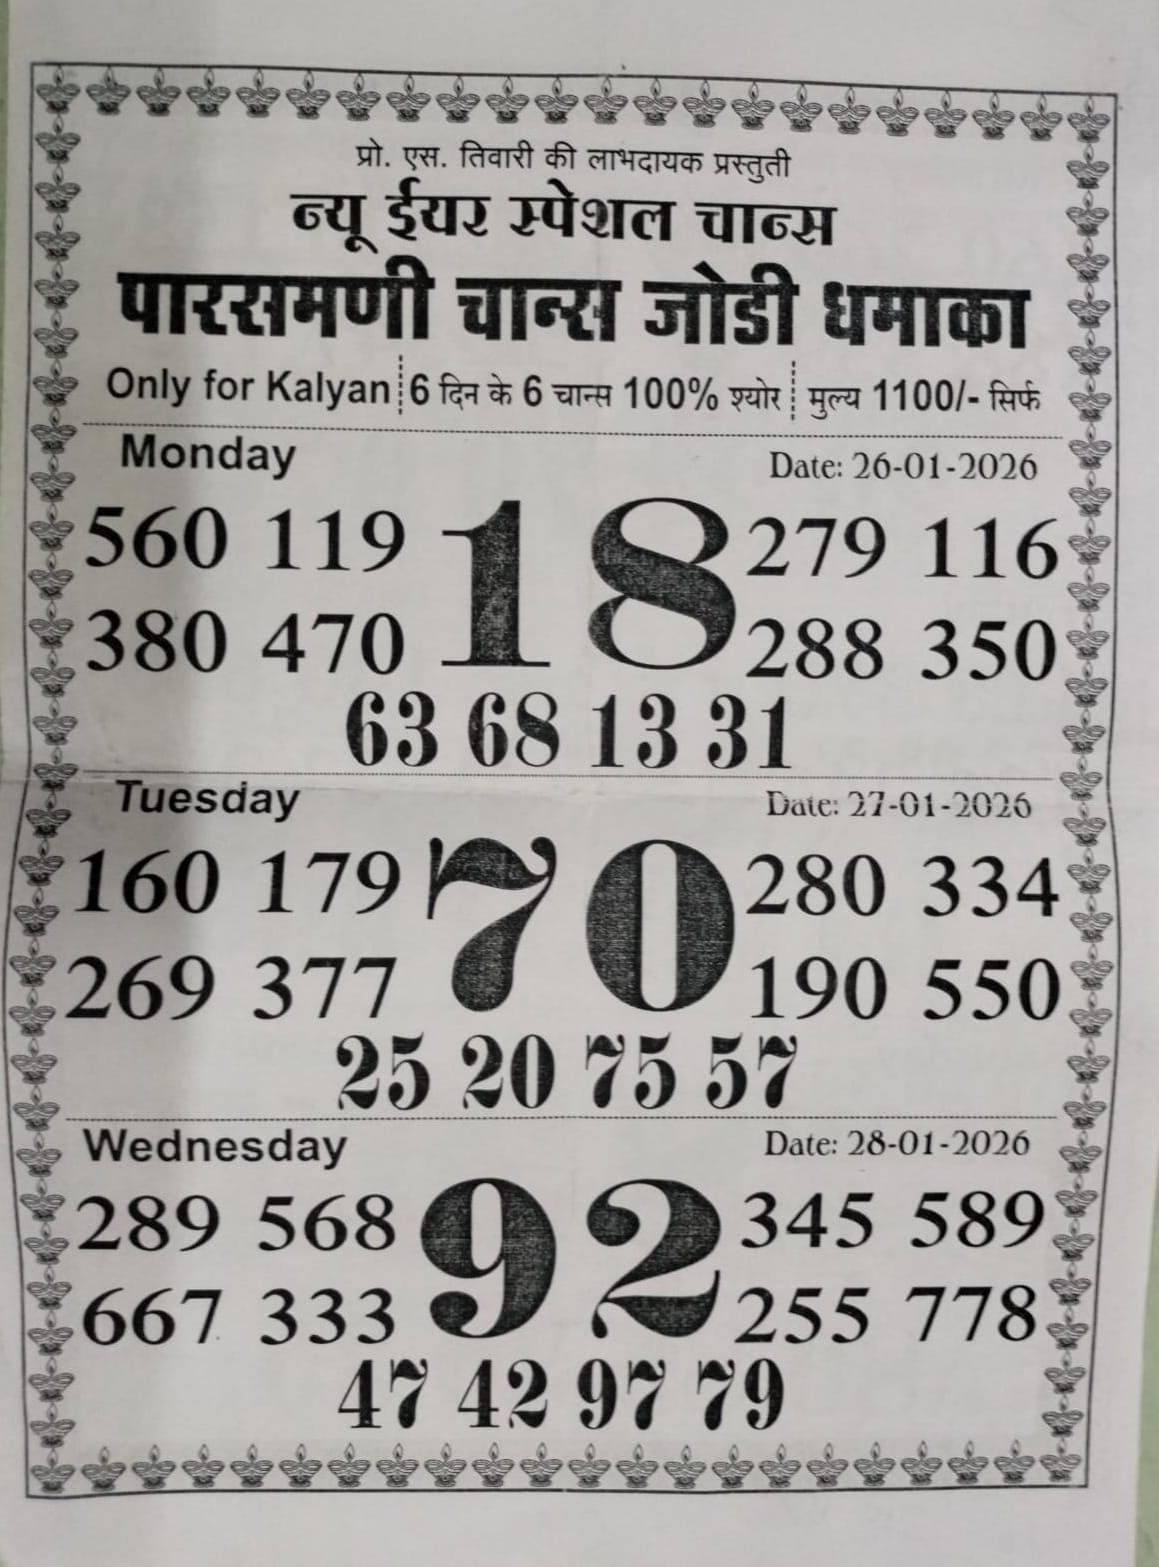 प्रो. एस. तिवारी की लाभदायक प्रस्तुती
न्यू ईयर स्पेशल चान्स
पारसमणी चान्स जोडी धमाका
Only for Kalyan 6 दिन के 6 चान्स 100% श्योर मुल्य 1100/- सिर्फ
Monday Date: 26-01-2026
560 119 18 279 116
380 470 288 350
63 68 13 31
Tuesday Date: 27-01-2026
160 179 70 280 334
269 377 190 550
25 20 75 57
Wednesday Date: 28-01-2026
289 568 92 345 589
667 333 255 778
47 42 97 79